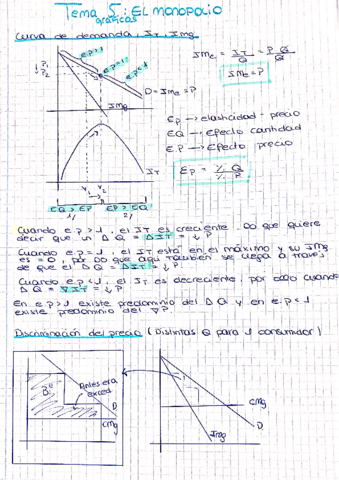 Tema 5: EL MONOPOLIO
gráficas
Curva de demanda, IT, IMg
e.p>1
e.p=1
e.p<1
P1
P2
D = IMe = P
IMg
IMe = IT/Q = P·Q/Q
IMe = P
Ep → elasticidad-precio
EQ → Efecto cantidad
E.P → Efecto precio
Ep = Q / P
IT
EQ > EP
EP > EQ
1/
2/
Cuando e.p>1, el IT es creciente. Do que quiere
decir que un ΔQ = ΔIT = ↓P.
Cuando e.p=1, el IT está en el máximo y su IMg
es = 0, por Do que aquí también se llega a través
de que el ΔQ = ΔIT = ↓P.
Cuando e.p<1, el IT es decreciente, por Do cuando
ΔQ = ∇IT = ↓P.
En e.p>1 existe predominio del ΔQ y en e.p<1
existe predominio del ∇P.
Discriminación del precio (Distintas Q para 1 consumidor)
Antes era
exced
D
CMg
CMg
D
IMg